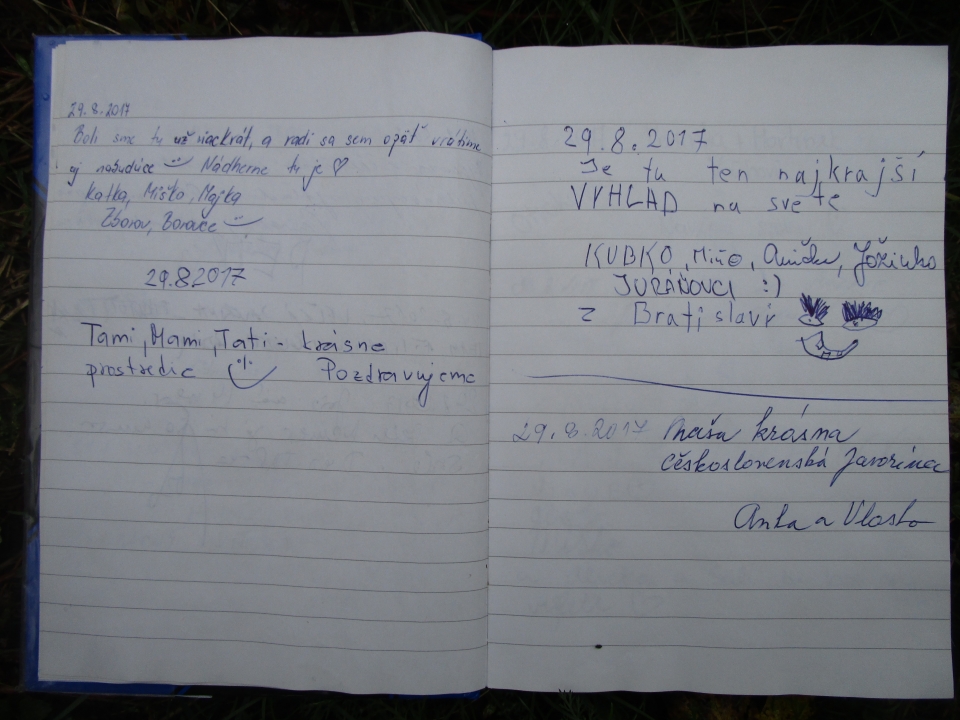 29.8.2017
Boli sme tu už viackrát, a radi sa sem opäť vrátime
aj nabudúce Nádherne tu je ♡
Katka, Miško, Majka
Zborov, Borovce
29.8.2017
Tami, Mami, Tati - krásne
prostredie Pozdravujeme
29.8.2017
Je tu ten najkrajší
VÝHLAD na svete
KUBKO, Miňo, Anička, Jožinko
JURÁŇOVCI :)
z Bratislavy
29.8.2017 Naša krásna
československá Javorina
Anka a Vlasto